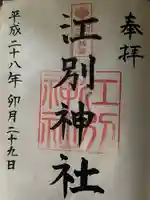 奉拝
江別神社
平成二十八年卯月二十九日
江別神社